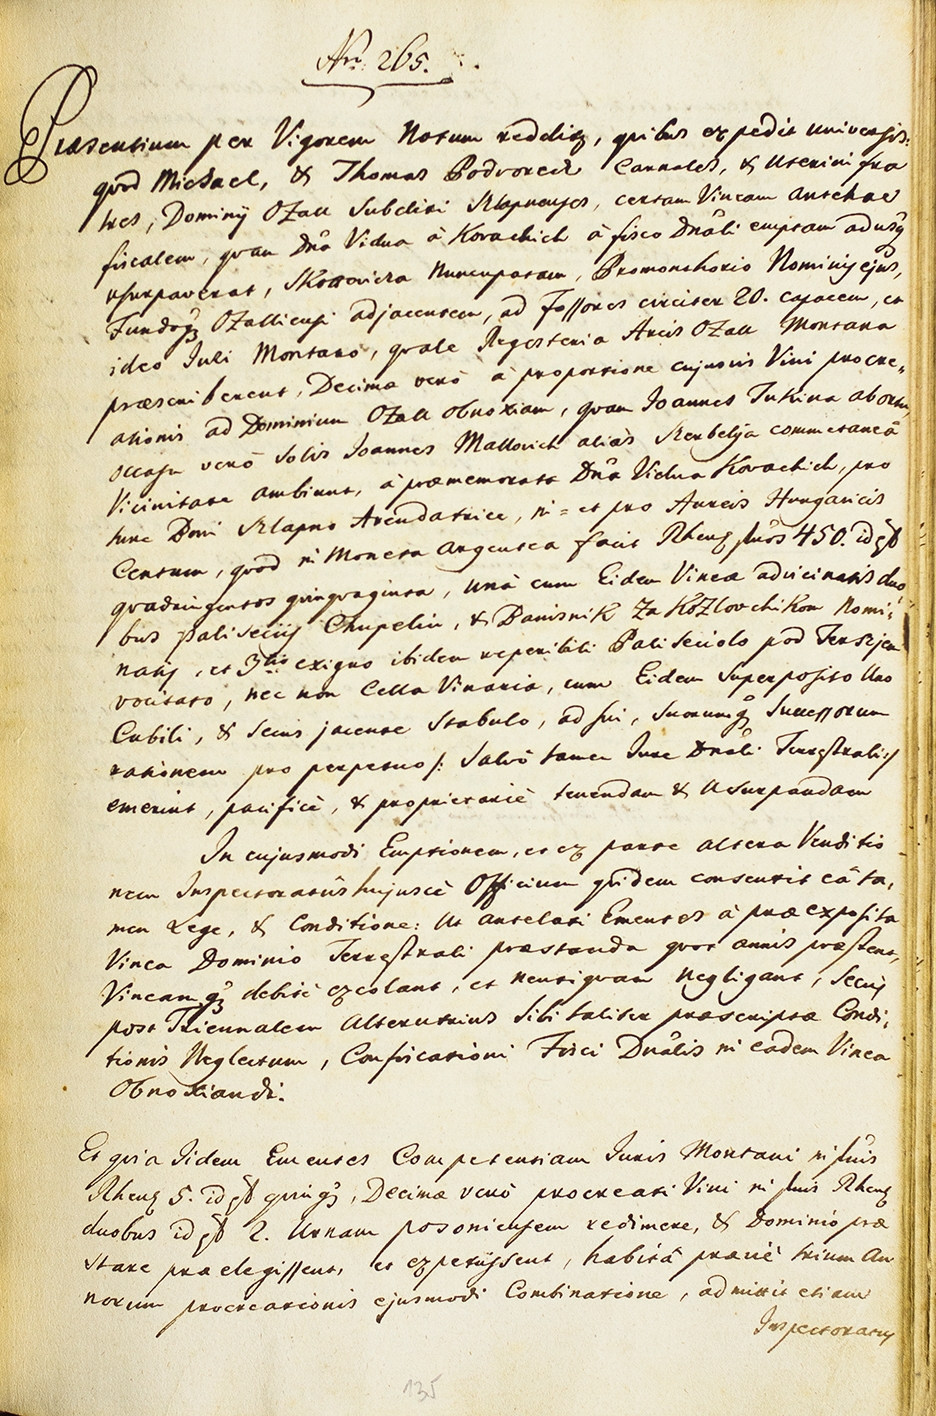 Nro. 265.
Præsentium per Vigorem Notum redditq, quibus expedit universis:
quod Michael, & Thomas Podvorecz Carnales, & Uterini fra
tres, Dominij Ozall Subditi Szlapnenses, certam Vineam antehac
fiscalem, quam Dna Vidua a Kovachich à fisco Dnali emptam adusq
usurpaverat, nuncupatam, Promonthorio Nominis ejus,
Fundoq Ozalliensi adjacentem, ad Fossores circiter 20. capacem, et
ideo Juri Montano, quale Regesteria Arcis Ozall Montana
præscriberent, Decimæ verò à proportione cujusvis Vini procre„
ationis ad Dominium Ozall obnoxiam, quam Joannes Jukina ab ortu
occasu verò Solis Joannes Mallovich aliàs Skerbelja commetaneâ
Vicinitate ambiunt, à præmemorata Dna Vidua Kovachich, pro
tunc Boni Szlapno Arendatrice, in = et pro Aureis Hungaricis
Centum, quod in Moneta argentea facit Rhenq suos 450. id est
quadringentos quinquaginta, unà cum Eidem Vineæ advicinatis duo
bus palisecijs Chupelin, & Banisnik za Kozlovchikom Nomi„
natis, et 3tio exiguo ibidem reperibili Paliseciolo pod Tersjem
vocitato, nec non Cella Vinaria, cum Eidem Superposito Uno
Cubili, & Secus jacente Stabulo, ad sui, suorumq Successorum
rationem pro perpetuo /: Salvò tamen Jure Dnali Terrestrali :/
emerint, pacificè, & proprietariè tenendam & Usurpandam
In cujusmodi Emptionem, et ex parte altera Venditio
nem Inspectoratûs hujusce Officium quidem consentit eâ ta„
men Lege, & Conditione: Ut antelati Ementes à præexposita
Vinea Dominio Terrestrali præstanda quot annis præstent,
Vineamq debitè excolant, et neutiquam negligant, secus
post Triennalem Alterutrius Sibi taliter præscriptæ Condi„
tionis Neglectum, Confiscationi Fisci Dnalis in eadem Vinea
Obnoxiandi.
Et quia Iidem Ementes Competentiam Juris Montani in suis
Rhenq 5. id est quinq, Decimæ verò procreati Vini in suis Rhenq
duobus id est 2. Urnam posoniensem redimere, & Dominio præ
stare præelegissent, et expetijssent, habitâ præviè trium An
norum procreationis ejusmodi Combinatione, admittit etiam
Inspectoratus
135